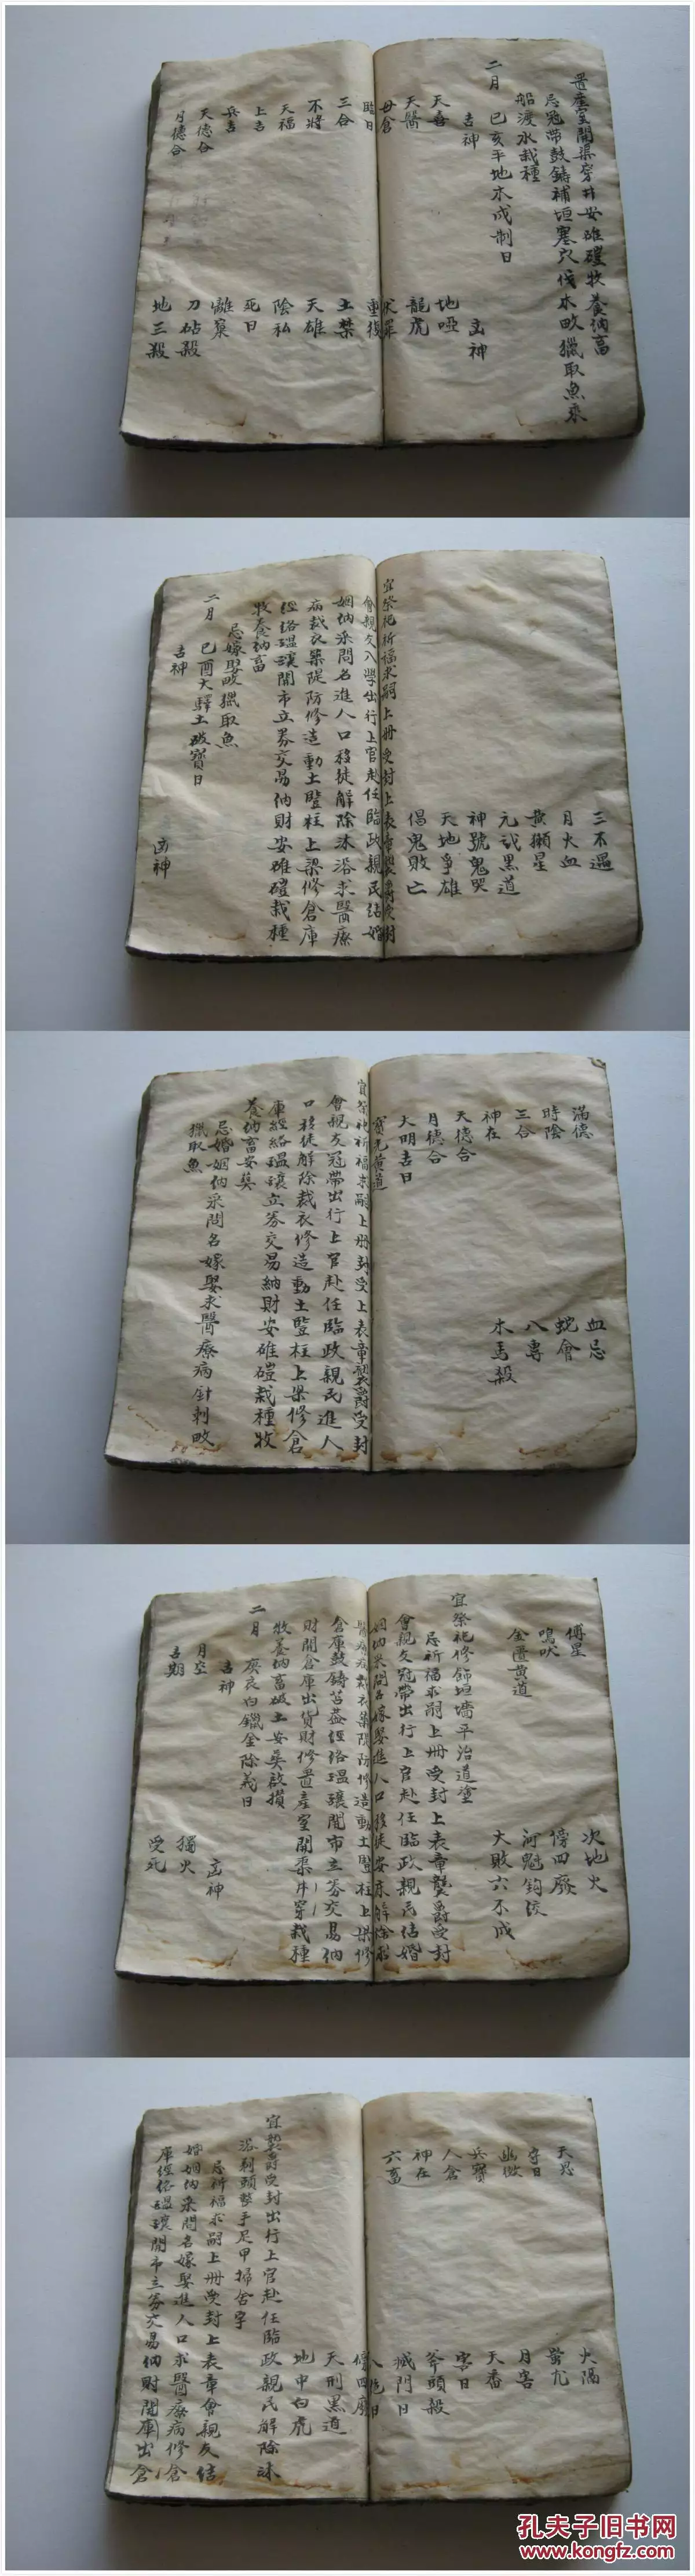 置產室開渠穿井安碓磑牧養納畜
忌冠帶鼓鑄補垣塞穴伐木畋獵取魚乘
船渡水栽種
二月 己亥平地木成制日
吉神 凶神
天喜 地啞
天醫 龍虎
母倉 求罪
臨日 重復
三合 土禁
不將 天雄
天福 陰私
上吉 死日
兵吉 離窠
天德合 刀砧殺
月德合 地三殺
三不遇
月火血
黄獺星
元武黑道
神號鬼哭
天地爭雄
倡鬼敗亡
宜祭祀祈福求嗣上冊受封上表章襲爵受封
會親友入學出行上官赴任臨政親民結婚
姻納采問名進人口移徒解除沐浴求醫療
病裁衣築隄防修造動土豎柱上梁修倉庫
經絡瑥瓖開市立券交易納財安碓磑栽種
牧養納畜
忌嫁娶畋獵取魚
二月 己酉大驛土破寶日
吉神 凶神
滿德 血忌
時陰 蛇會
三合 八專
神在 木馬殺
天德合
月德合
大明吉日
寶光黄道
宜祭祀祈福求嗣上冊封受上表章襲爵受封
會親友冠帶出行上官赴任臨政親民進人
口移徒解除裁衣修造動土豎柱上梁修倉
庫經絡瑥瓖立券交易納財安碓磑栽種牧
養納畜安葬
忌婚姻納采問名嫁娶求醫療病針刺畋
獵取魚
傅星 次地火
鳴吠 傍四廢
金匱黄道 河魁鈎絞
大敗六不成
宜祭祀修飾垣墻平治道塗
忌祈福求嗣上冊受封上表章襲爵受封
會親友冠帶出行上官赴任臨政親民結婚
姻納采問名嫁娶進人口移徒安床解除求
醫療病裁衣築隄防修造動土豎柱上梁修
倉庫鼓鑄苫葢經絡瑥瓖開市立券交易納
財開倉庫出貨財修置產室開渠井穿栽種
牧養納畜破土安葬啟攢
二月 庚辰白鑞金除義日
吉神 凶神
月空 獨火
吉期 受死
天恩 火隔
守日 蚩尤
幽微 月害
兵寶 天番
人倉 害日
神在 斧頭殺
六畜 滅門日
人絶日
傍四廢
天刑黑道
地中白虎
宜襲爵受封出行上官赴任臨政親民解除沐
浴剃頭整手足甲掃舍宇
忌祈福求嗣上冊受封上表章會親友結
婚姻納采問名嫁娶進人口求醫療病修倉
庫經絡瑥瓖開市立券交易納財開庫出倉
孔夫子旧书网
www.kongfz.com